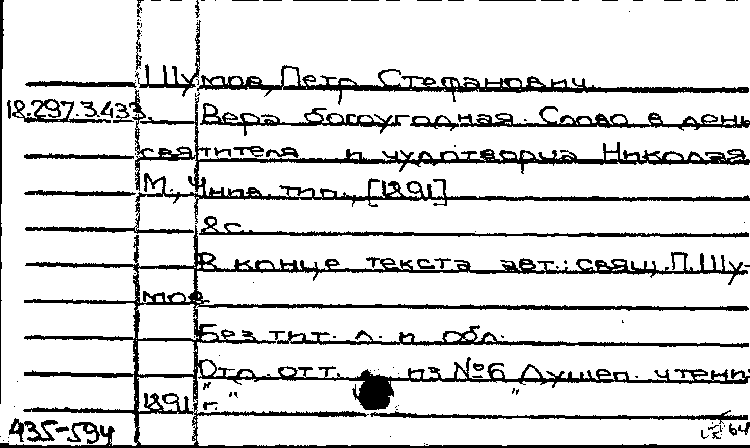 Шумов, Петр Стефанович.
18.297.3.433. Вера богоугодная. Слово в день
святителя и чудотворца Николая
М., Унив. тип., [1891]
8 с.
В конце текста авт.: свящ. П. Шу-
мов.
Без тит. л. и обл.
Отд. отт. из №6 "Душеп. чтени"
1891 г.
435-594